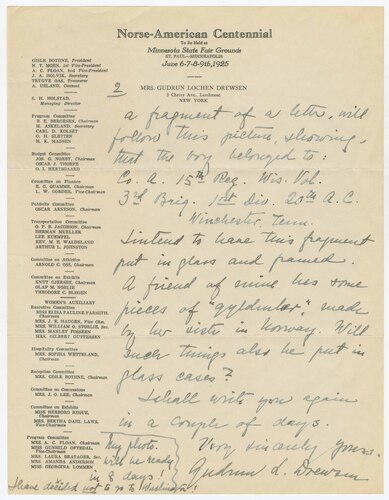 Norse-American Centennial
To Be Held at
Minnesota State Fair Grounds
ST. PAUL—MINNEAPOLIS
June 6-7-8-9th, 1925
GISLE BOTHNE, President
N. T. MOEN, 1st Vice-President
A. C. FLOAN, 2nd Vice-President
J. A. HOLVIK, Secretary
TRYGVE OAS, Treasurer
A. UELAND, Counsel
S. H. HOLSTAD,
Managing Director
2
MRS. GUDRUN LOCHEN DREWSEN
3 Cherry Ave., Larchmont
NEW YORK
a fragment of a letter, will
follow this picture, showing,
that the boy belonged to:
Co. A. 15th Reg. Wis. Vol.
3rd Brig. 1st Div. 20th A. C.
Winchester, Tenn.
I intend to have this fragment
put in glass and framed.
A friend of mine has some
pieces of "gyldenlær", made
by her sister in Norway. Will
such things also be put in
glass cases?
I shall write you again
in a couple of days.
Very sincerely yours.
Gudrun L. Drewsen
Program Committee
H. ASKELAND, Secretary
CARL D. KOLSET
O. H. SLETTEN
H. K. MADSEN
Budget Committee
JOS. G. NORBY, Chairman
OSCAR J. THORPE
O. I. HERTSGAARD
Committee on Finance
E. G. QUAMME, Chairman
L. W. GORDER, Vice-Chairman
Publicity Committee
OSCAR ARNESON, Chairman
Transportation Committee
O. P. B. JACOBSON, Chairman
HERMAN MUELLER
LEE KUEMPEL
REV. M. E. WALDELAND
ARTHUR L. JOHNSTON
Committee on Athletics
ARNOLD C. OSS, Chairman
Committee on Exhibits
KNUT GJERSET, Chairman
OLAF M. NORLIE
THEODORE C. BLEGEN
WOMEN'S AUXILIARY
Executive Committee
MISS ELISA PAULINE FARSETH, Chairman
MRS. WILLIAM O. STORLIE, Sec.
MRS. MANLEY FOSSEEN
MRS. GILBERT GUTTERSEN
Hospitality Committee
MRS. SOPHIA WETTELAND, Chairman
Reception Committee
MRS. GISLE BOTHNE, Chairman
Committee on Concessions
MRS. J. O. LEE, Chairman
Committee on Exhibits
MISS HERBORG REQUE, Chairman
MRS. BERTHA DAHL LAWS, Vice Chairman
Program Committee
MRS. A. C. FLOAN, Chairman
MISS GUNHILD OFTEDAL, Vice-Chairman
MRS. LAURA BRATAGER, Sec.
MRS. AMANDA ANDERSON
MISS GEORGINA LOMMEN
My photo.
will be ready
in 8 days.
I have decided not to go to Washington!